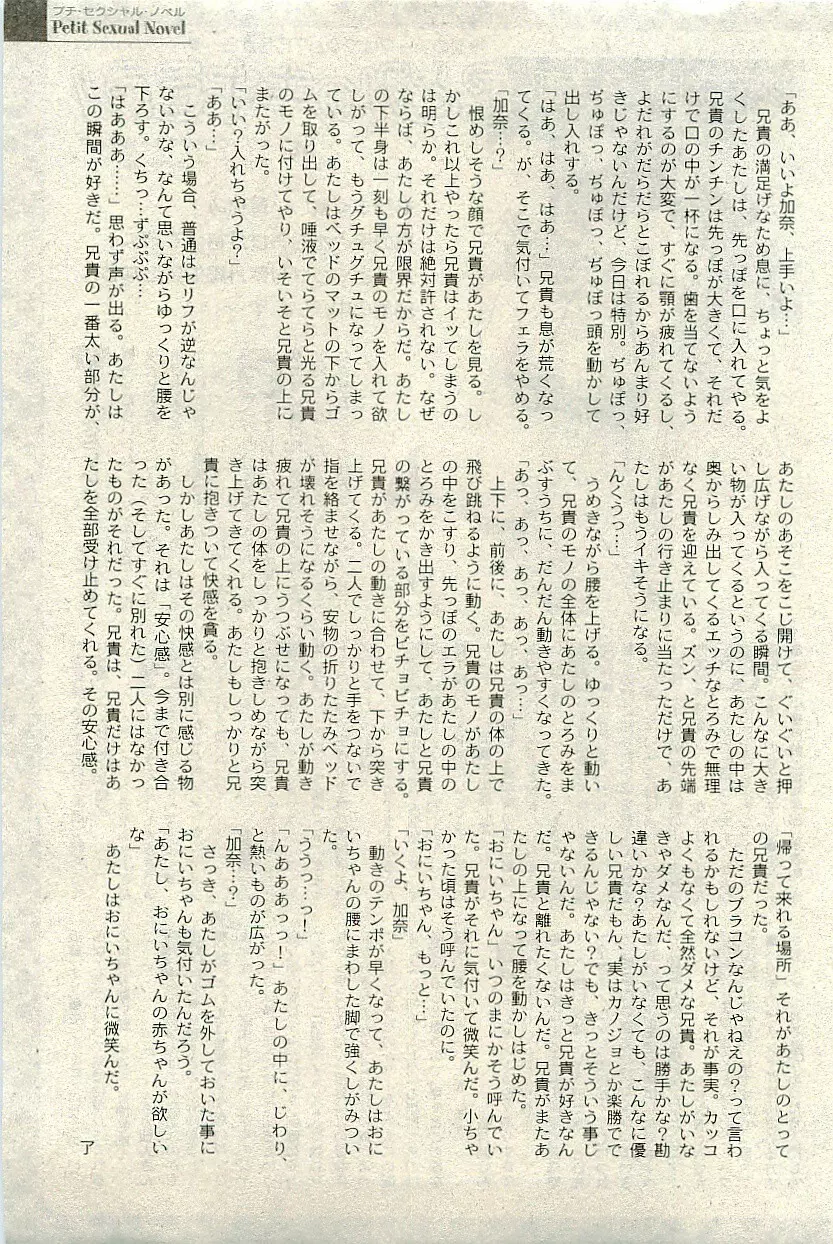 プチ・セクシャル・ノベル
Petit Sexual Novel
「ああ、いいよ加奈、上手いよ…」
　兄貴の満足げなため息に、ちょっと気をよ
くしたあたしは、先っぽを口に入れてやる。
兄貴のチンチンは先っぽが大きくて、それだ
けで口の中が一杯になる。歯を当てないよう
にするのが大変で、すぐに顎が疲れてくるし、
よだれがだらだらとこぼれるからあんまり好
きじゃないんだけど、今日は特別。ぢゅぽっ、
ぢゅぽっ、ぢゅぽっ、ぢゅぽっ頭を動かして
出し入れする。
「はあ、はあ、はあ…」兄貴も息が荒くなっ
てくる。が、そこで気付いてフェラをやめる。
「加奈…？」
　恨めしそうな顔で兄貴があたしを見る。し
かしこれ以上やったら兄貴はイッてしまうの
は明らか。それだけは絶対許されない。なぜ
ならば、あたしの方が限界だからだ。あたし
の下半身は一刻も早く兄貴のモノを入れて欲
しがって、もうグチュグチュになってしまっ
ている。あたしはベッドのマットの下からゴ
ムを取り出して、唾液でてらてらと光る兄貴
のモノに付けてやり、いそいそと兄貴の上に
またがった。
「いい？入れちゃうよ？」
「ああ…」
　こういう場合、普通はセリフが逆なんじゃ
ないかな、なんて思いながらゆっくりと腰を
下ろす。くちっ…ずぷぷぷ…
「はあああ……」思わず声が出る。あたしは
この瞬間が好きだ。兄貴の一番太い部分が、
あたしのあそこをこじ開けて、ぐいぐいと押
し広げながら入ってくる瞬間。こんなに大き
い物が入ってくるというのに、あたしの中は
奥からしみ出してくるエッチなとろみで無理
なく兄貴を迎えている。ズン、と兄貴の先端
があたしの行き止まりに当たっただけで、あ
たしはもうイキそうになる。
「んくうっ…」
　うめきながら腰を上げる。ゆっくりと動い
て、兄貴のモノの全体にあたしのとろみをま
ぶすうちに、だんだん動きやすくなってきた。
「あっ、あっ、あっ、あっ、あっ…」
　上下に、前後に、あたしは兄貴の体の上で
飛び跳ねるように動く。兄貴のモノがあたし
の中をこすり、先っぽのエラがあたしの中の
とろみをかき出すようにして、あたしと兄貴
の繋がっている部分をビチョビチョにする。
兄貴があたしの動きに合わせて、下から突き
上げてくる。二人でしっかりと手をつないで
指を絡ませながら、安物の折りたたみベッド
が壊れそうになるくらい動く。あたしが動き
疲れて兄貴の上にうつぶせになっても、兄貴
はあたしの体をしっかりと抱きしめながら突
き上げてきてくれる。あたしもしっかりと兄
貴に抱きついて快感を貪る。
　しかしあたしはその快感とは別に感じる物
があった。それは「安心感」。今まで付き合
った（そしてすぐに別れた）二人にはなかっ
たものがそれだった。兄貴は、兄貴だけはあ
たしを全部受け止めてくれる。その安心感。
「帰って来れる場所」それがあたしのとって
の兄貴だった。
　ただのブラコンなんじゃねえの？って言わ
れるかもしれないけど、それが事実。カッコ
よくもなくて全然ダメな兄貴。あたしがいな
きゃダメなんだ、って思うのは勝手かな？勘
違いかな？あたしがいなくても、こんなに優
しい兄貴だもん、実はカノジョとか楽勝でで
きるんじゃない？でも、きっとそういう事じ
ゃないんだ。あたしはきっと兄貴が好きなん
だ。兄貴と離れたくないんだ。兄貴がまたあ
たしの上になって腰を動かしはじめた。
「おにいちゃん」いつのまにかそう呼んでい
た。兄貴がそれに気付いて微笑んだ。小ちゃ
かった頃はそう呼んでいたのに。
「おにいちゃん、もっと…」
「いくよ、加奈」
　動きのテンポが早くなって、あたしはおに
いちゃんの腰にまわした脚で強くしがみつい
た。
「ううっ…っ！」
「んあああっっ！」あたしの中に、じわり、
と熱いものが広がった。
「加奈…？」
　さっき、あたしがゴムを外しておいた事に
おにいちゃんも気付いたんだろう。
「あたし、おにいちゃんの赤ちゃんが欲しい
な」
　あたしはおにいちゃんに微笑んだ。
了